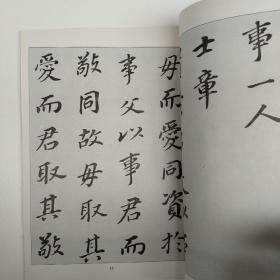 事一人
士章
母而愛同資於
事父以事君而
敬同故母取其
愛而君取其敬